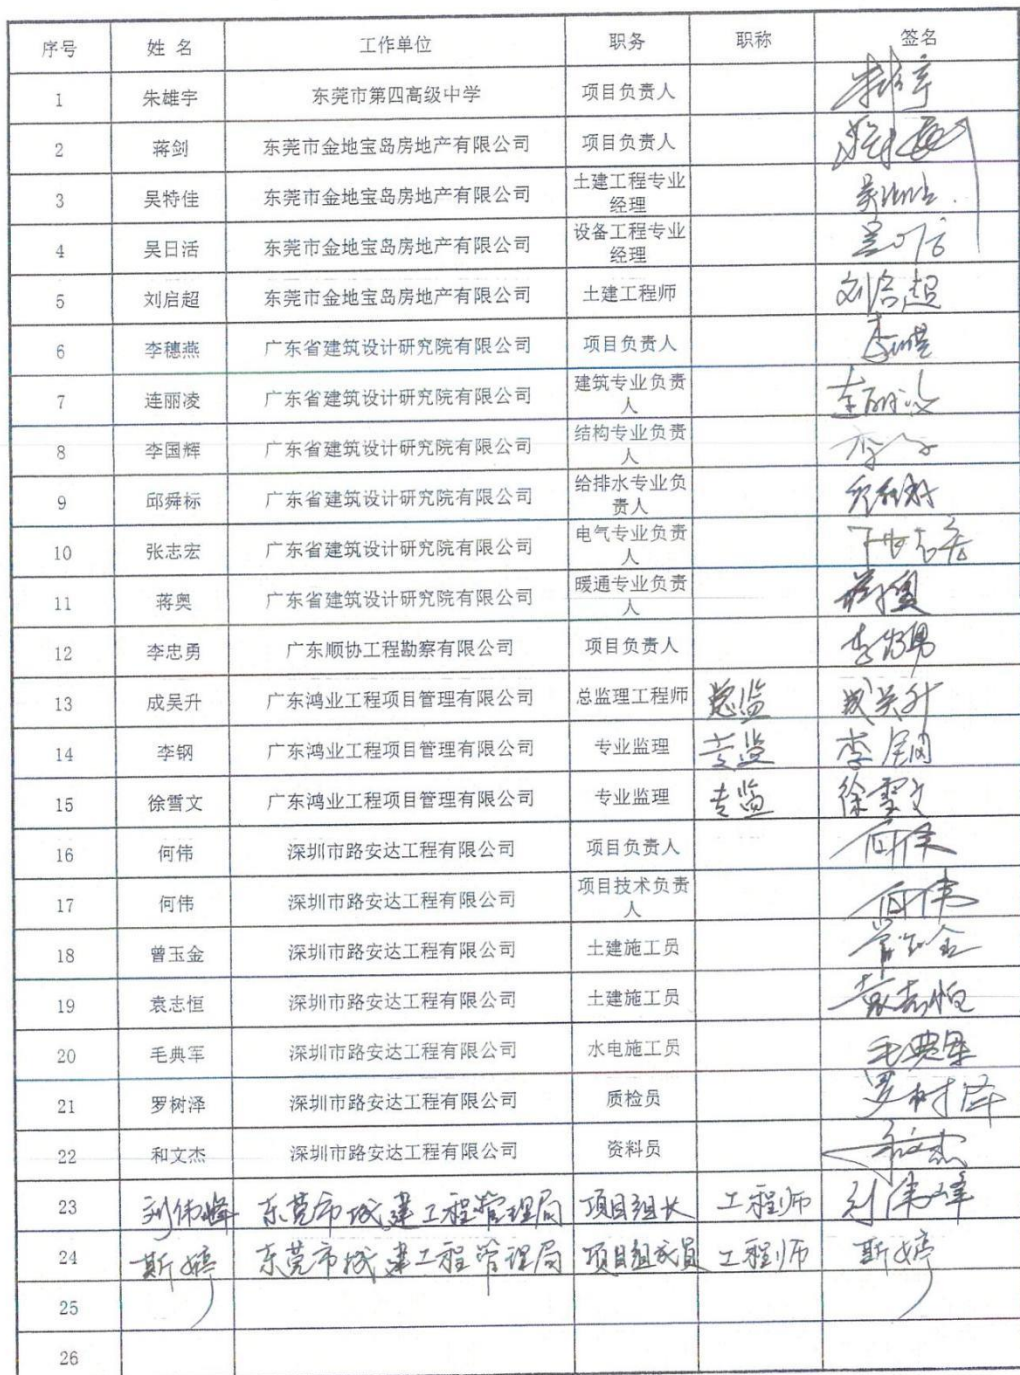 序号 姓 名 工作单位 职务 职称 签名
1 朱雄宇 东莞市第四高级中学 项目负责人
2 蒋剑 东莞市金地宝岛房地产有限公司 项目负责人
3 吴特佳 东莞市金地宝岛房地产有限公司 土建工程专业
经理
4 吴日活 东莞市金地宝岛房地产有限公司 设备工程专业
经理
5 刘启超 东莞市金地宝岛房地产有限公司 土建工程师 刘启超
6 李穗燕 广东省建筑设计研究院有限公司 项目负责人
7 连丽凌 广东省建筑设计研究院有限公司 建筑专业负责
人 连丽凌
8 李国辉 广东省建筑设计研究院有限公司 结构专业负责
人
9 邱舜标 广东省建筑设计研究院有限公司 给排水专业负
责人
10 张志宏 广东省建筑设计研究院有限公司 电气专业负责
人
11 蒋奥 广东省建筑设计研究院有限公司 暖通专业负责
人
12 李忠勇 广东顺协工程勘察有限公司 项目负责人 李忠勇
13 成吴升 广东鸿业工程项目管理有限公司 总监理工程师 总监 成吴升
14 李钢 广东鸿业工程项目管理有限公司 专业监理 专监 李钢
15 徐雪文 广东鸿业工程项目管理有限公司 专业监理 专监 徐雪文
16 何伟 深圳市路安达工程有限公司 项目负责人 何伟
17 何伟 深圳市路安达工程有限公司 项目技术负责
人 何伟
18 曾玉金 深圳市路安达工程有限公司 土建施工员
19 袁志恒 深圳市路安达工程有限公司 土建施工员 袁志恒
20 毛典军 深圳市路安达工程有限公司 水电施工员 毛典军
21 罗树泽 深圳市路安达工程有限公司 质检员 罗树泽
22 和文杰 深圳市路安达工程有限公司 资料员 和文杰
23 刘伟峰 东莞市城建工程管理局 项目组长 工程师 刘伟峰
24 斯婷 东莞市城建工程管理局 项目组成员 工程师 斯婷
25
26